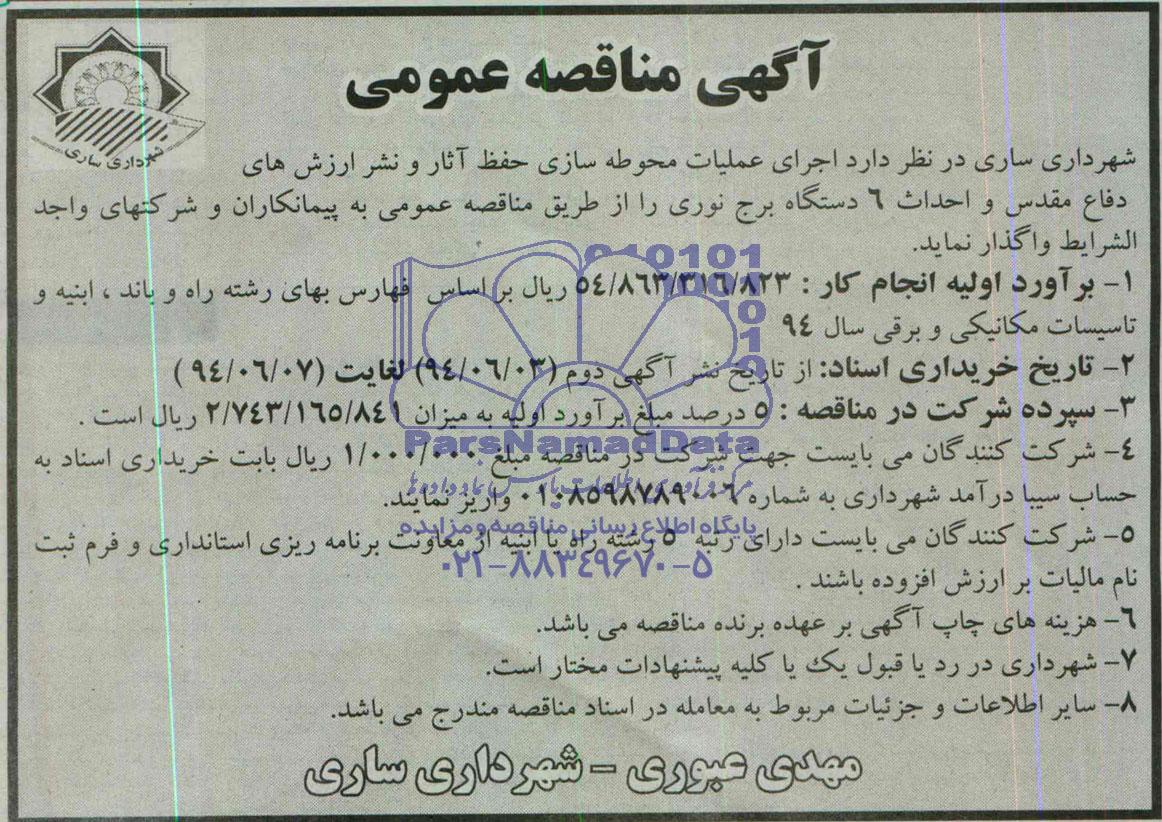 آگهی مناقصه عمومی
شهرداری ساری
شهرداری ساری در نظر دارد اجرای عملیات محوطه سازی حفظ آثار و نشر ارزش های
دفاع مقدس و احداث ٦ دستگاه برج نوری را از طریق مناقصه عمومی به پیمانکاران و شرکتهای واجد
الشرایط واگذار نماید.
۱- برآورد اولیه انجام کار : ٥٤/٨٦٣/٣١٦/٨٢٣ ریال بر اساس فهارس بهای رشته راه و باند ، ابنیه و
تاسیسات مکانیکی و برقی سال ٩٤
۲- تاریخ خریداری اسناد: از تاریخ نشر آگهی دوم (٩٤/٠٦/٠٣) لغایت (٩٤/٠٦/٠٧ )
۳- سپرده شرکت در مناقصه : ٥ درصد مبلغ برآورد اولیه به میزان ٢/٧٤٣/١٦٥/٨٤١ ریال است .
٤- شرکت کنندگان می بایست جهت شرکت در مناقصه مبلغ ١/٠٠٠/٠٠٠ ریال بابت خریداری اسناد به
حساب سیبا درآمد شهرداری به شماره ٠١٠٨٥٩٨٧٨٩٠٠٦ واریز نمایند.
٥- شرکت کنندگان می بایست دارای رتبه ٥ رشته راه یا ابنیه از معاونت برنامه ریزی استانداری و فرم ثبت
نام مالیات بر ارزش افزوده باشند .
٦- هزینه های چاپ آگهی بر عهده برنده مناقصه می باشد.
٧- شهرداری در رد یا قبول یک یا کلیه پیشنهادات مختار است.
٨- سایر اطلاعات و جزئیات مربوط به معامله در اسناد مناقصه مندرج می باشد.
مهدی عبوری - شهرداری ساری
ParsNamadData
پایگاه اطلاع رسانی مناقصه و مزایده
۰۲۱-۸۸۳۴۹۶۷۰-۵